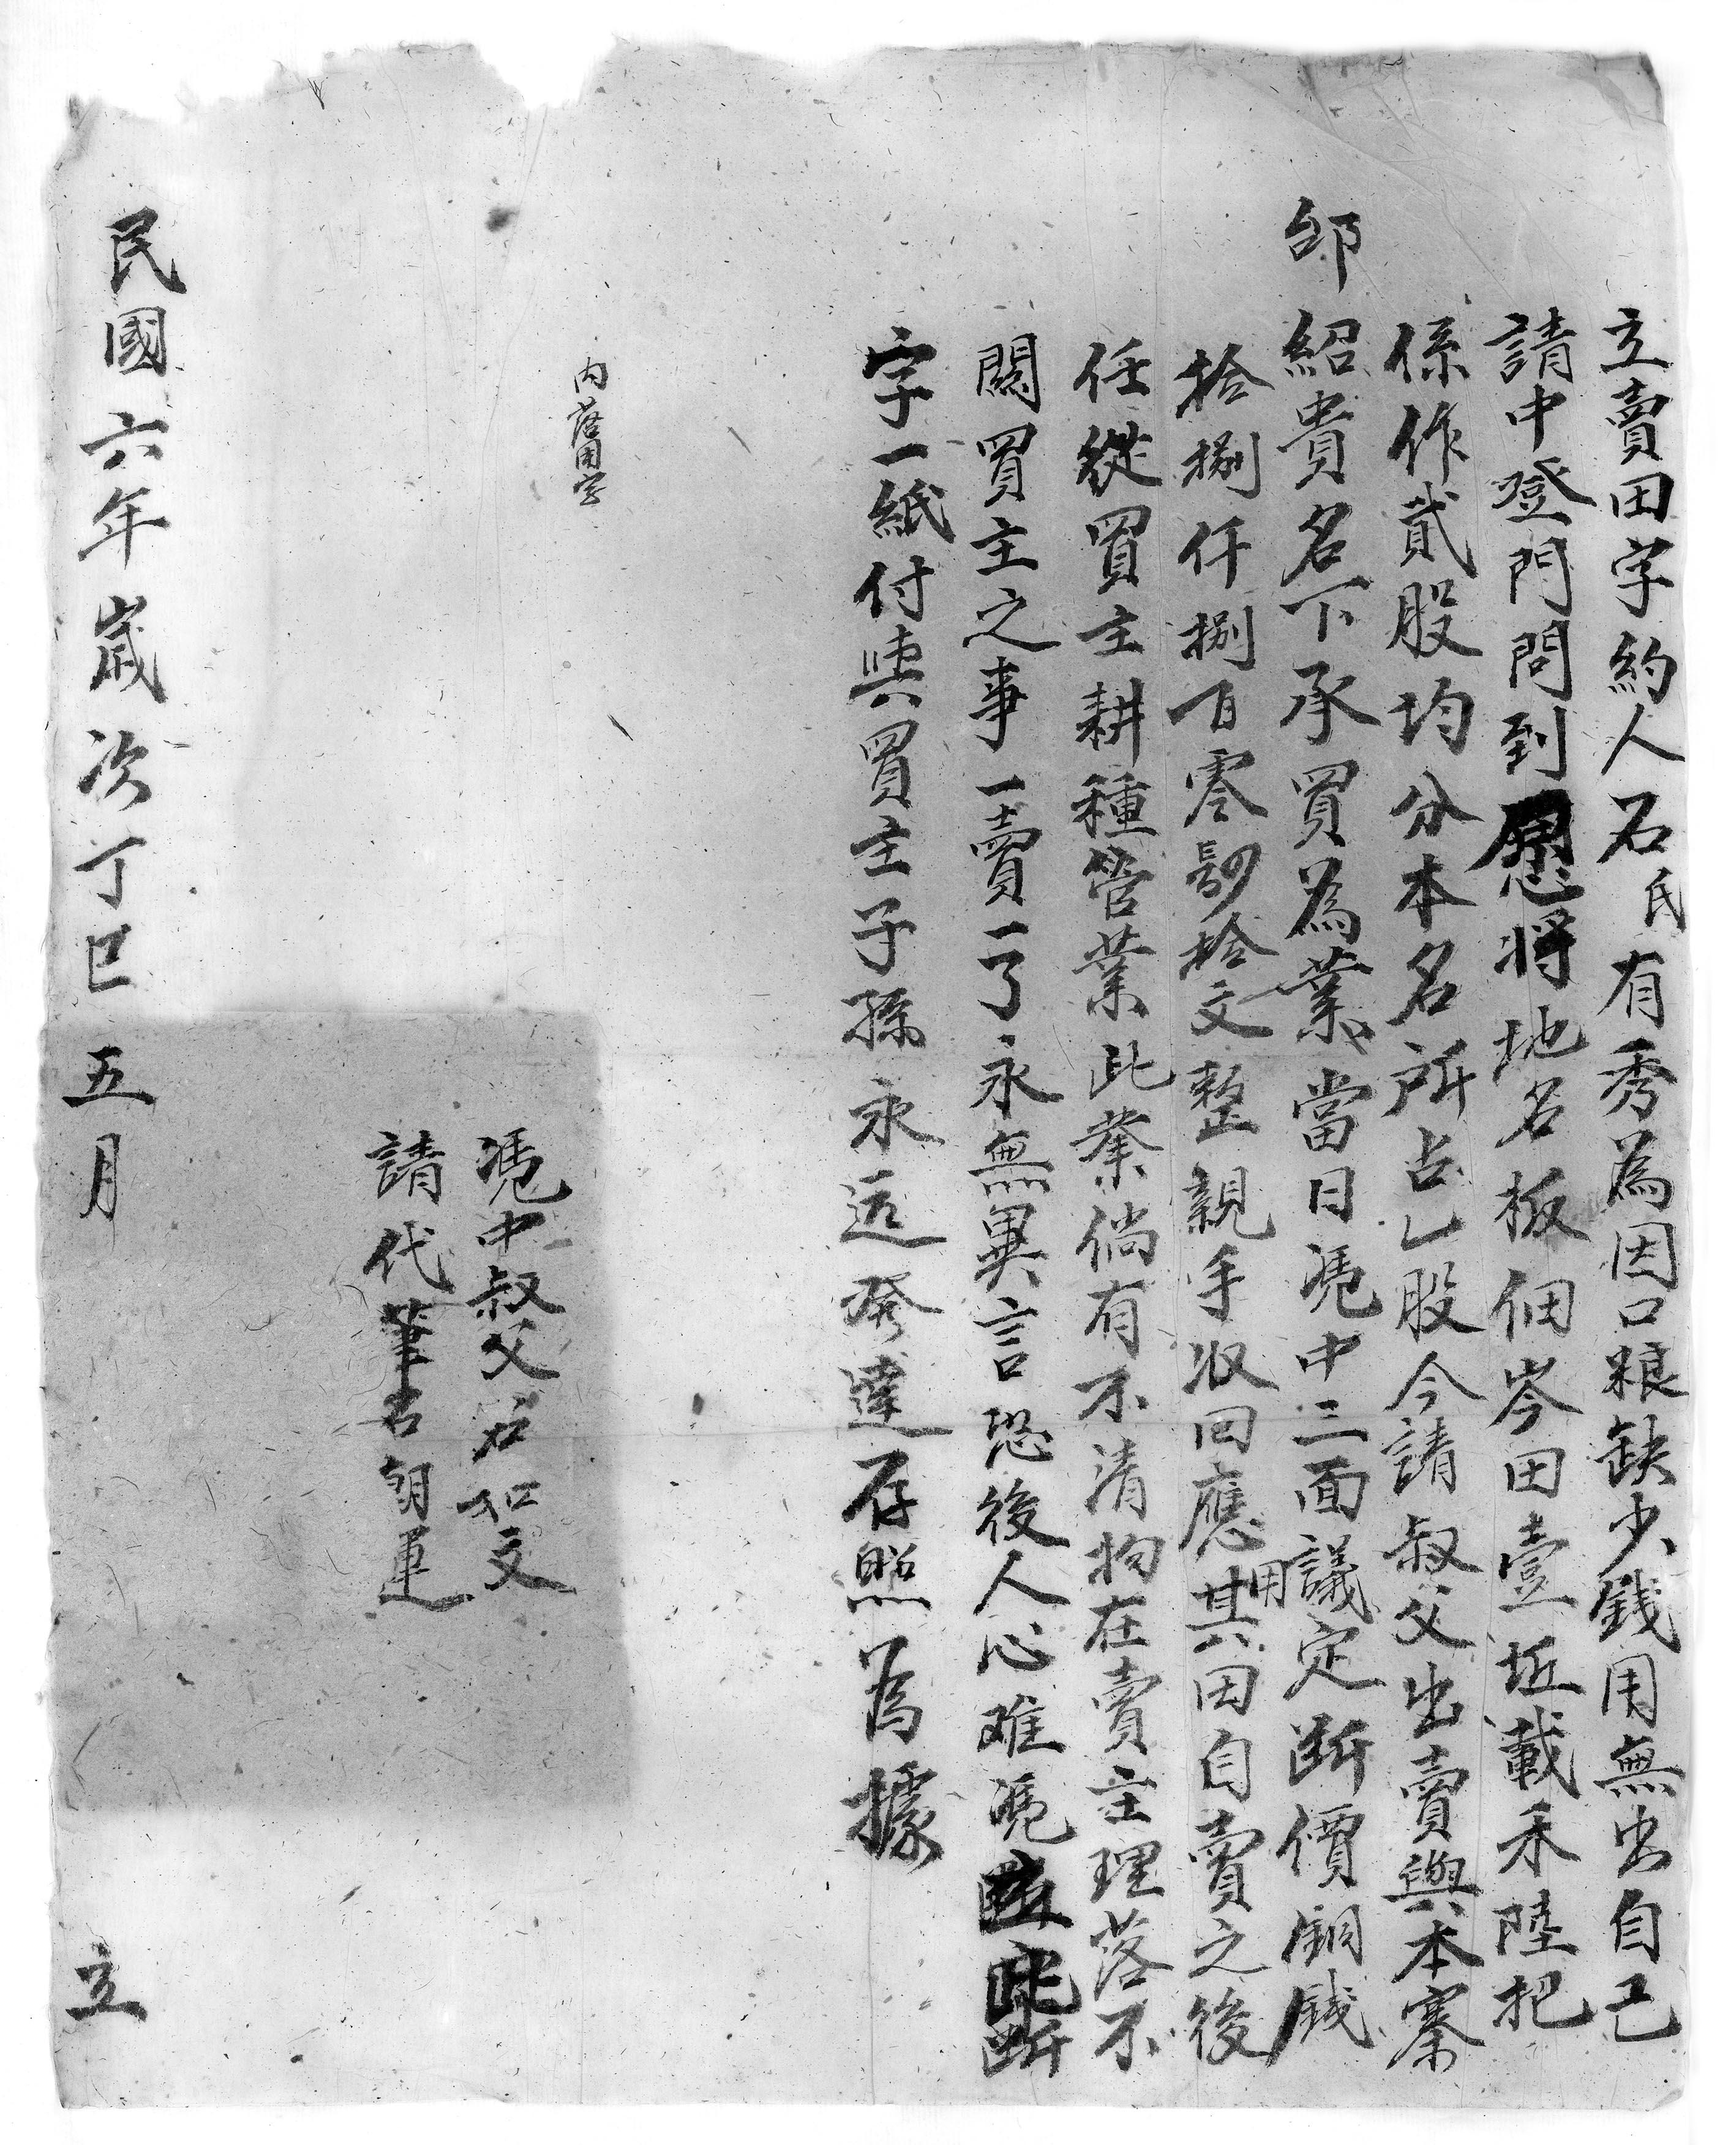 立賣田字約人石氏有秀為因口粮缺少錢用無出自己
請中登門問到愿將地名板個岑田壹坵載禾陸把
係作貳股均分本名所占乚股今請叔父出賣與本寨
邰紹貴名下承買為業當日凴中三面議定断價銅錢
拾捌仟捌百零捌拾文整親手收回應用其田自賣之後
任從買主耕種管業此業倘有不清拘在賣主理落不
関買主之事一賣一了永無異言恐後人心难凴立此断
字一紙付與買主子孫永远發達存照為據
内落用字
凴中叔父石如文
請代筆石朝運
民國六年歲次丁巳五月 立